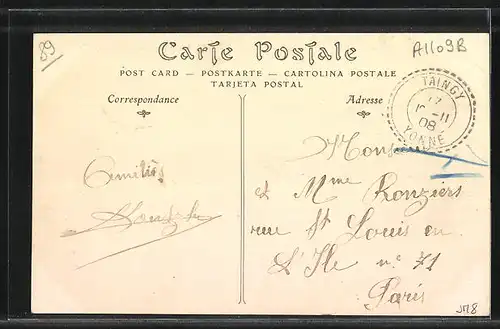 89
A1109B
Carte Postale
POST CARD — POSTKARTE — CARTOLINA POSTALE
TARJETA POSTAL
Correspondance
Adresse
TAINGY
11
08
YONNE
Monsieur
et Mme Ronziers
rue St Louis en
L'Ile n° 71
Paris
Amitiés